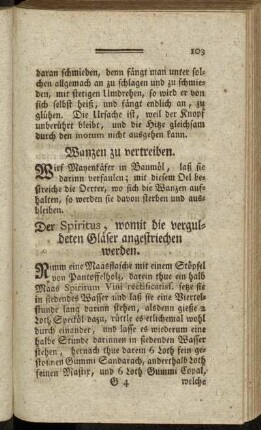 103
daran schmieden, denn fängt man unter sol-
chen allgemach an zu schlagen und zu schmie-
den, mit stetigen Umdrehen, so wird er von
sich selbst heiß, und fängt endlich an, zu
glühen. Die Ursache ist, weil der Knopf
unberührt bleibt, und die Hitze gleichsam
durch den motum nicht ausgehen kann.
Wanzen zu vertreiben.
Wirf Mayenkäfer in Baumöl, laß sie
darinn verfaulen; mit diesem Oel be-
streiche die Oerter, wo sich die Wanzen auf-
halten, so werden sie davon sterben und aus-
bleiben.
Der Spiritus, womit die vergul-
deten Gläser angestriechen
werden.
Nimm eine Maasflasche mit einem Stöpsel
von Pantoffelholz, darein thue ein halb
Maas Spiritum Vini rectificatisf. setze sie
in siedendes Wasser und laß sie eine Viertel-
stunde lang darinn stehen, alsdenn gieße 2
Loth Specköl dazu, rüttle es erstlich wohl
durch einander, und lasse es wiederum eine
halbe Stunde darinnen in siedenden Wasser
stehen, hernach thue darein 6 Loth fein ge-
stoßenen Gummi Sandarach, anderthalb Loth
feinen Mastix, und 6 Loth Gummi Copal,
G 4 welche